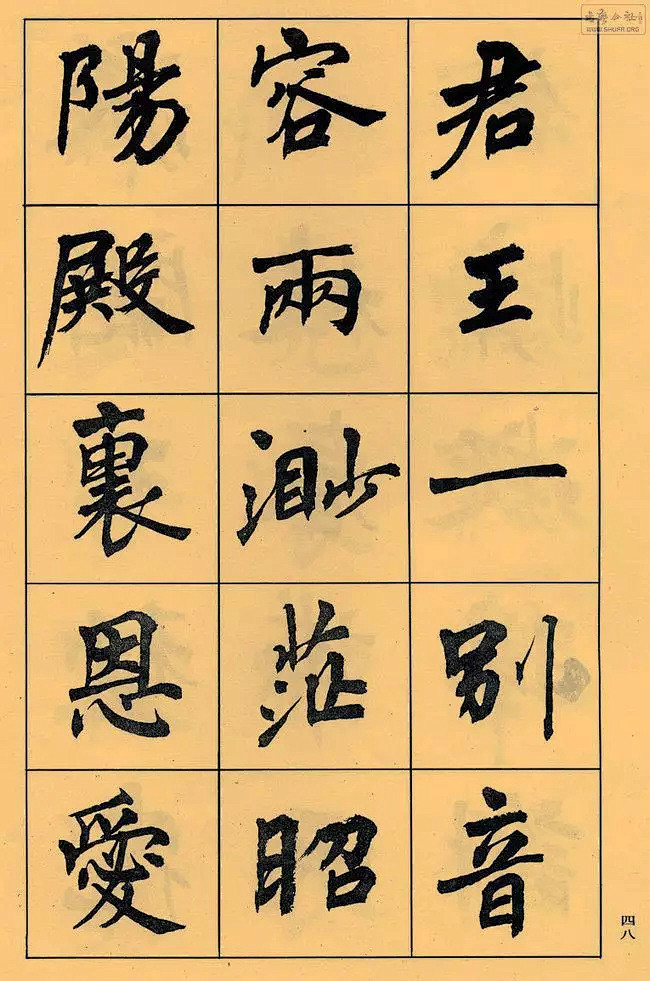 君王一別音
容兩渺茫昭
陽殿裏恩愛
四八
WWW.SHUFR.ORG